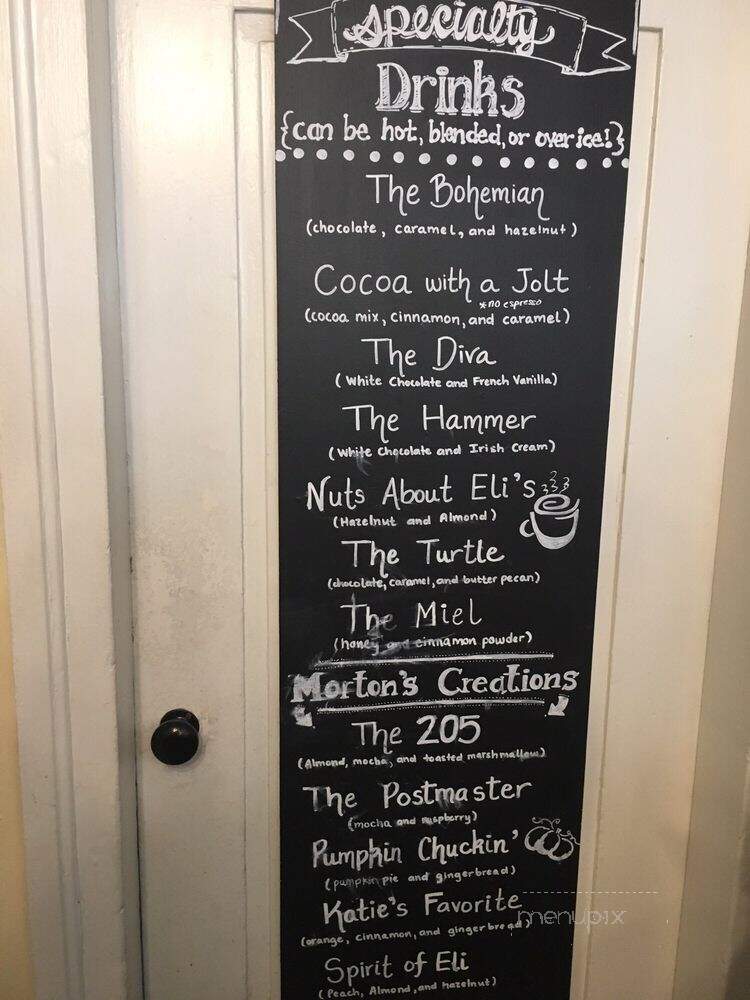 Specialty
Drinks
{can be hot, blended, or over ice!}
The Bohemian
(chocolate, caramel, and hazelnut)
Cocoa with a Jolt
*no espresso
(cocoa mix, cinnamon, and caramel)
The Diva
(White Chocolate and French Vanilla)
The Hammer
(White Chocolate and Irish Cream)
Nuts About Eli's
(Hazelnut and Almond)
The Turtle
(chocolate, caramel, and butter pecan)
The Miel
(honey and cinnamon powder)
Morton's Creations
The 205
(Almond, mocha, and toasted marshmallow)
The Postmaster
(mocha and raspberry)
Pumpkin Chuckin'
(pumpkin pie and gingerbread)
Katie's Favorite
(orange, cinnamon, and gingerbread)
Spirit of Eli
(Peach, Almond, and hazelnut)
menupix